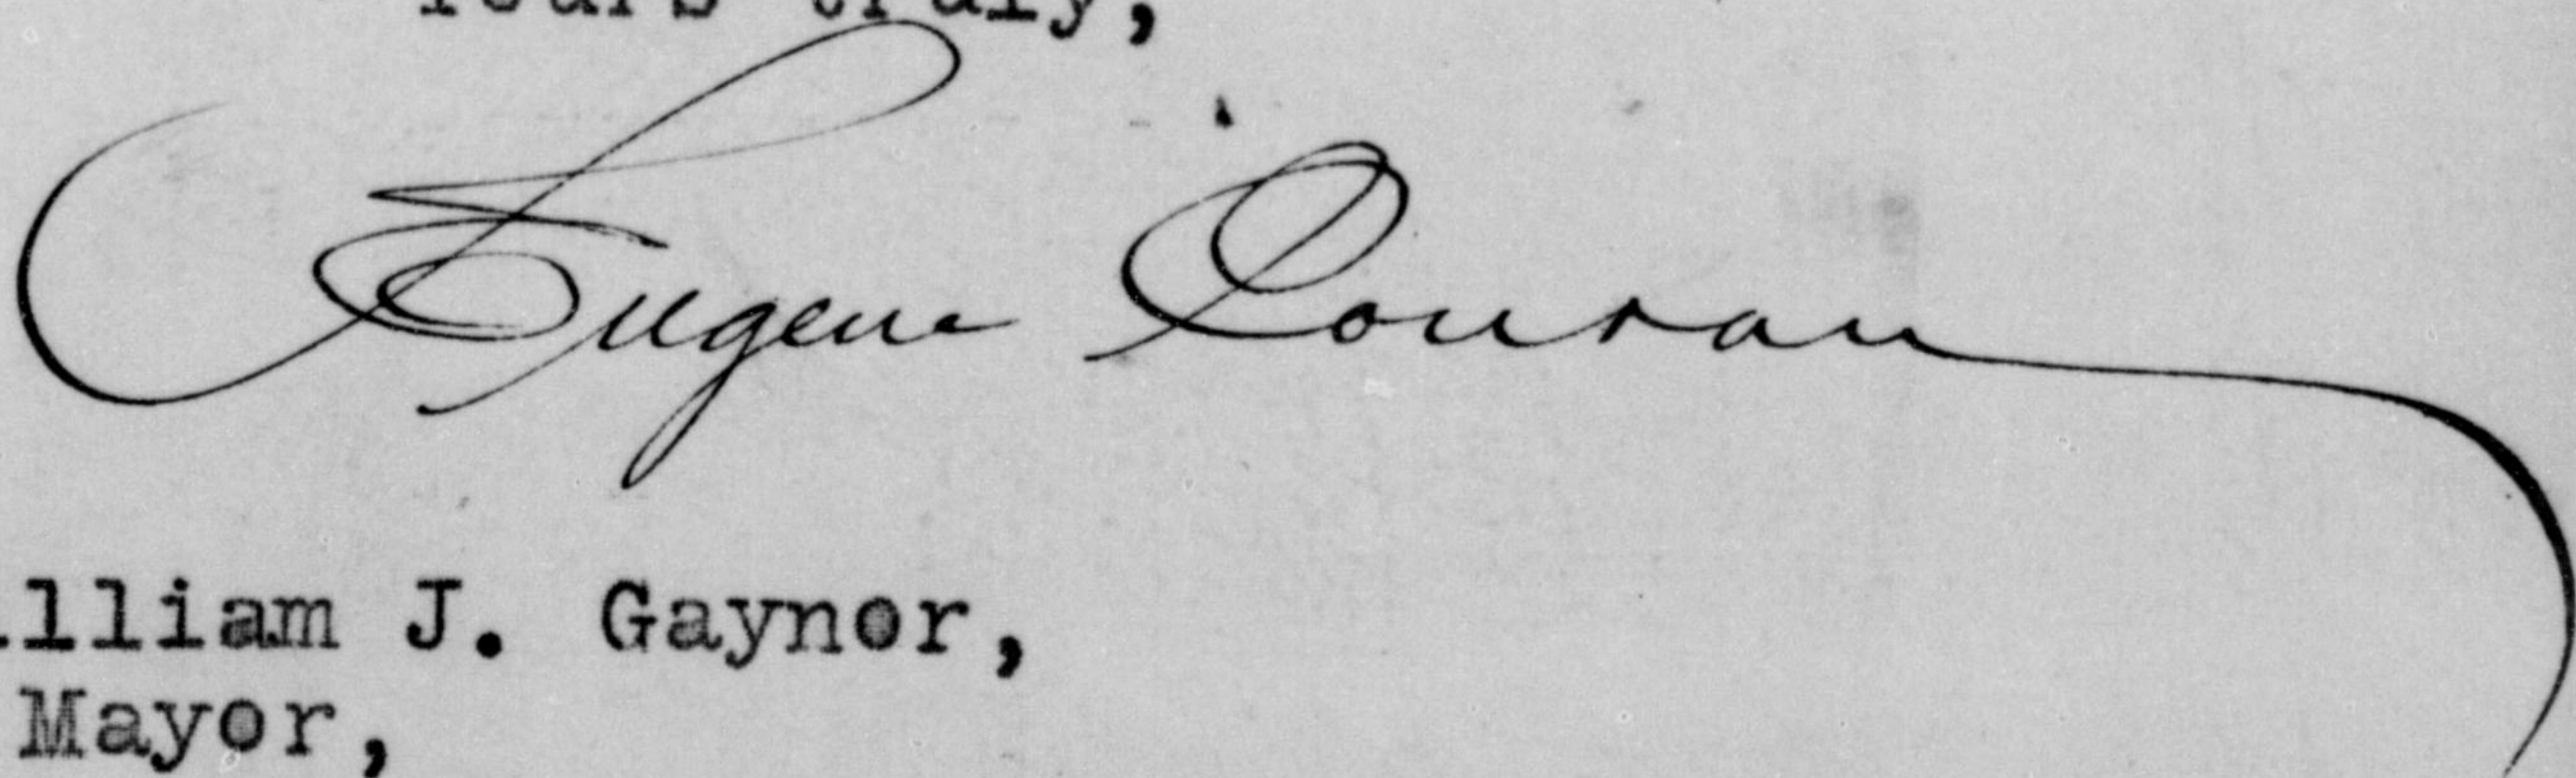 Yours truly,
Eugene Conran
illiam J. Gaynor,
Mayor,